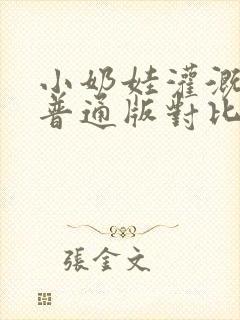 小奶娃灌溉
普通版對比
張金文